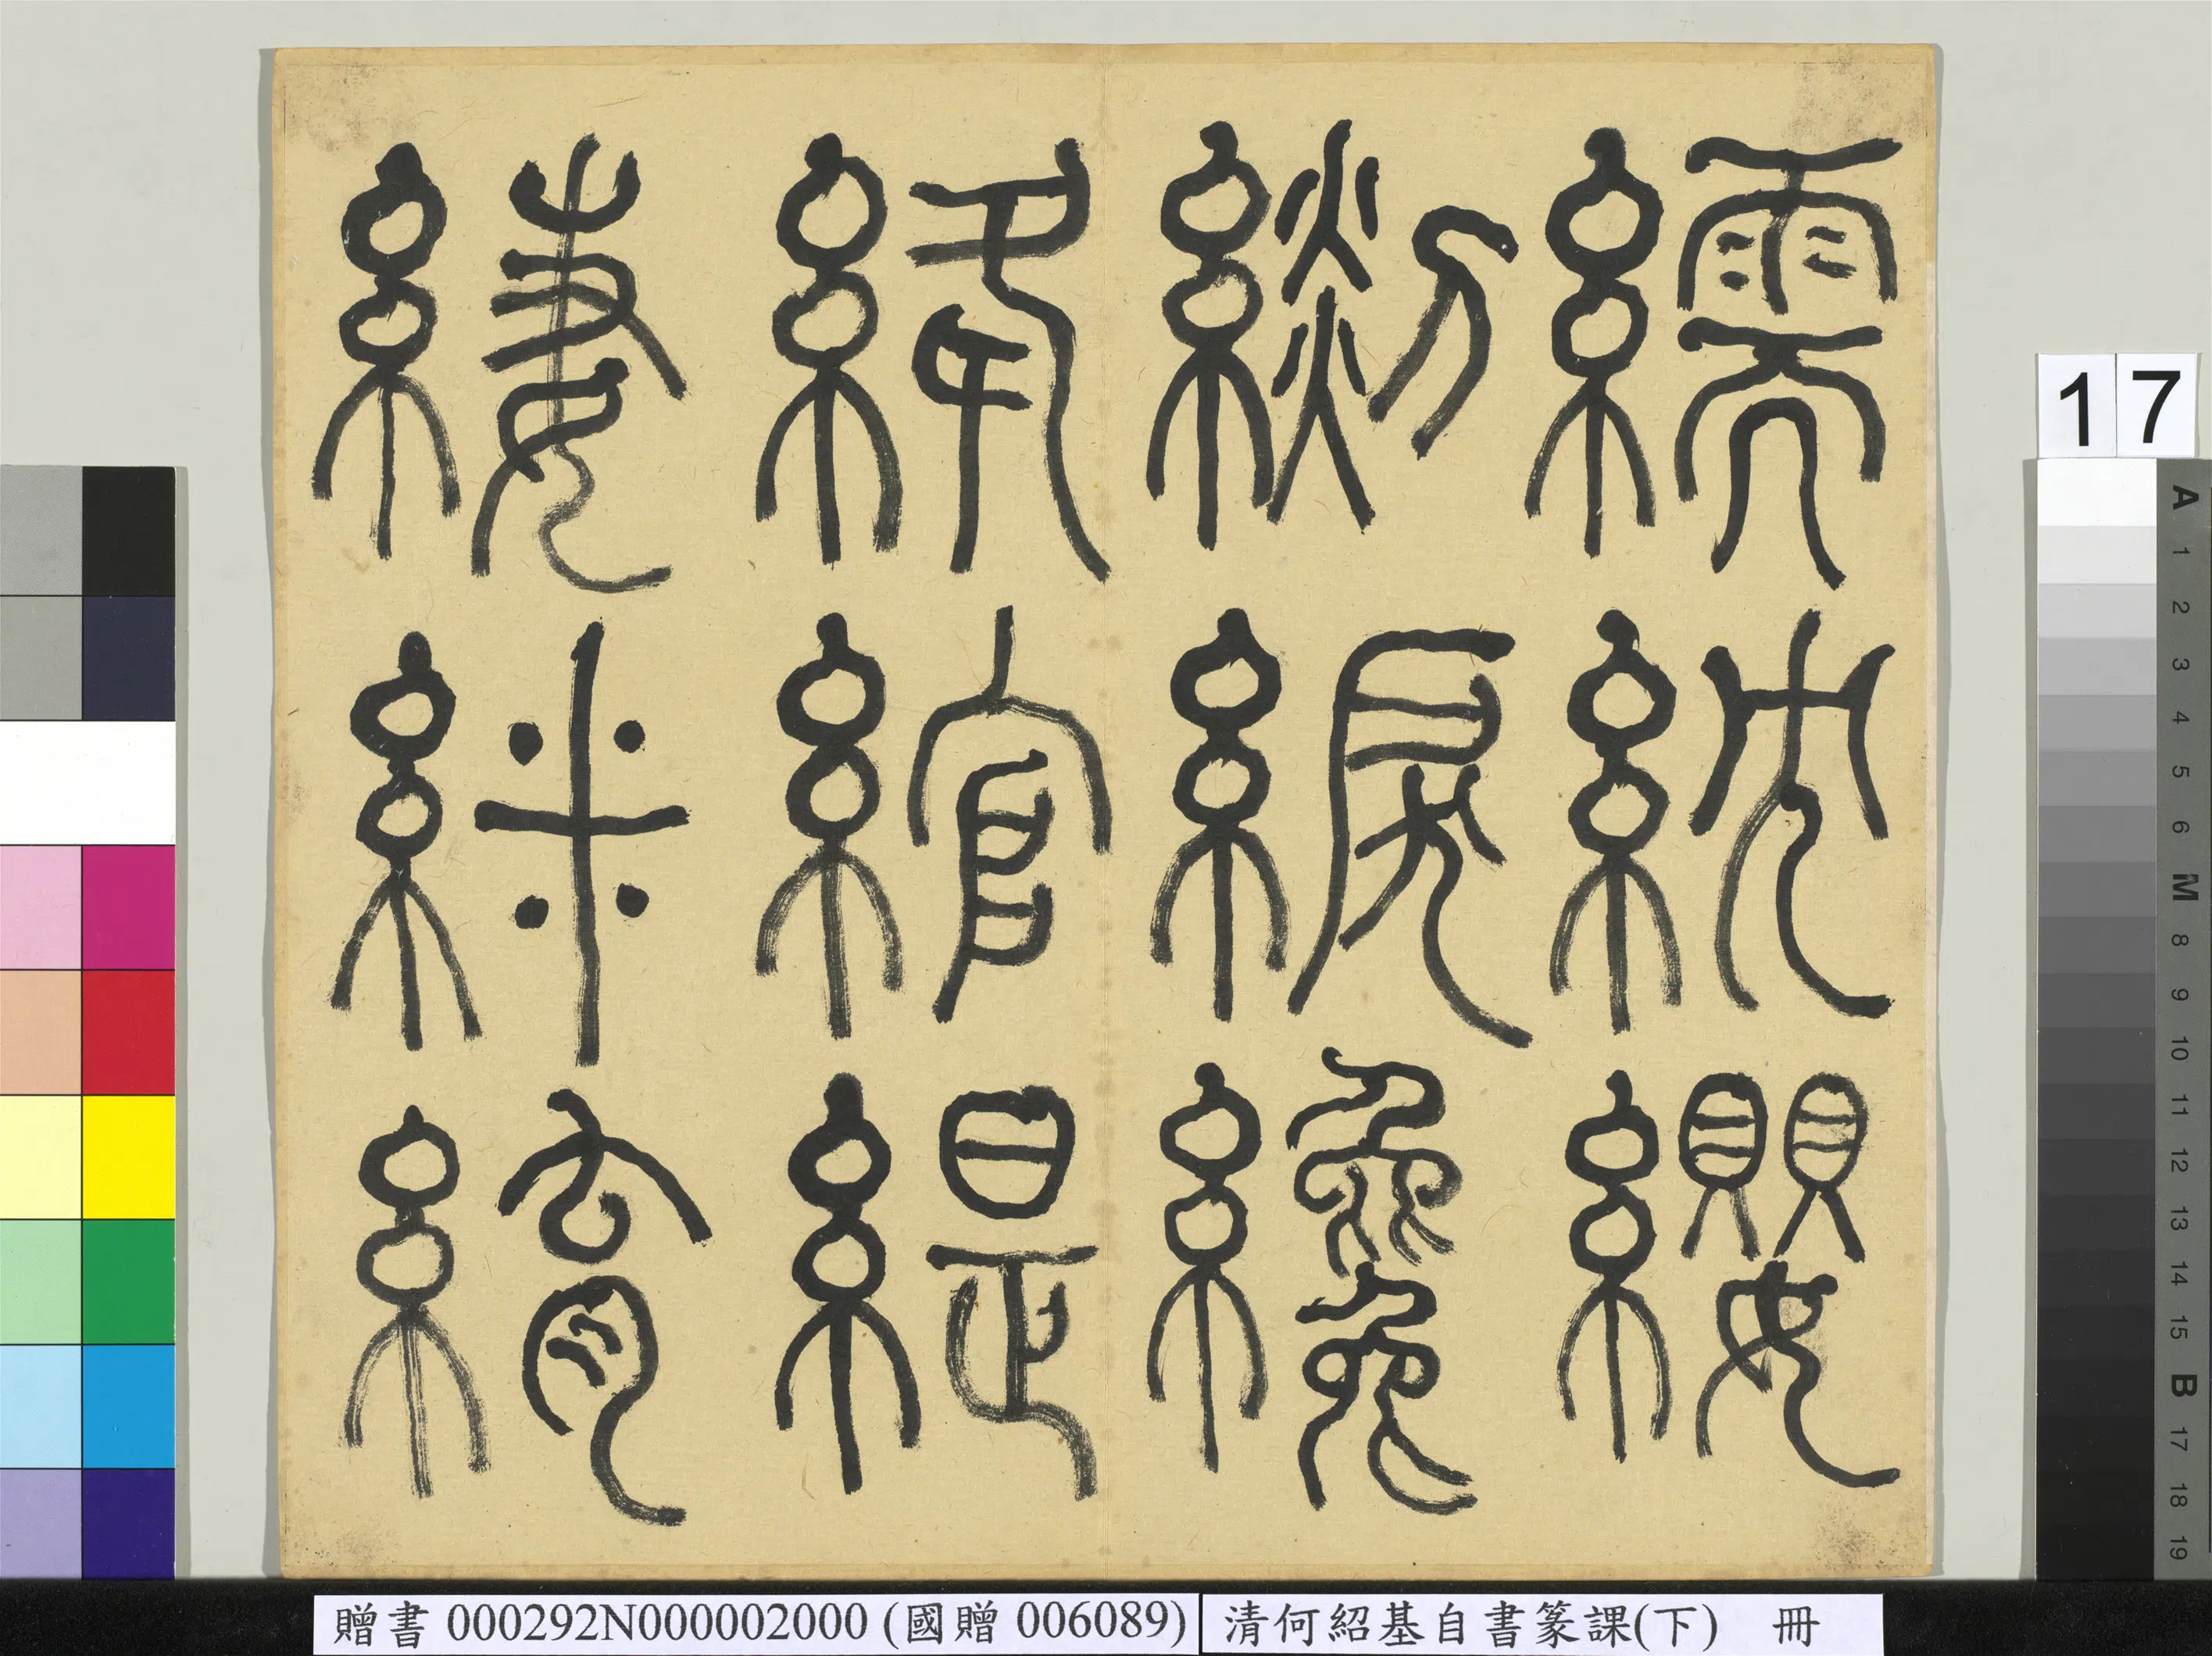 繻紞纓
纔
絳綰緹
緀䋛䋭
17
A 1 2 3 4 5 6 M 8 9 10 11 12 13 14 15 B 17 18 19
贈書 000292N000002000 (國贈 006089)
清何紹基自書篆課(下) 冊